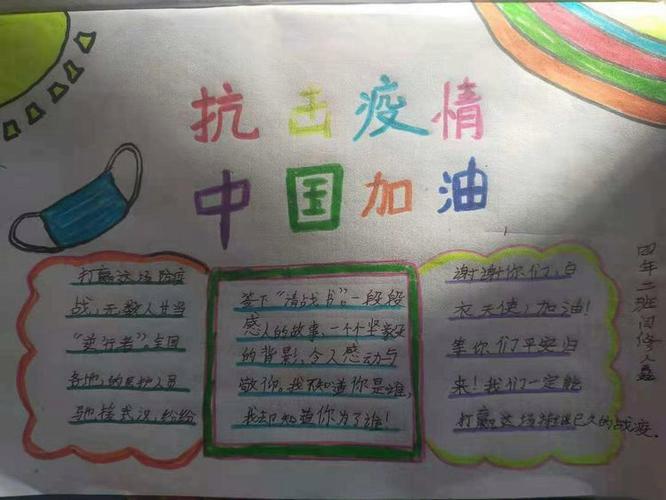 抗击疫情
中国加油
打赢这场防疫
战,无数人甘当
"逆行者",全国
各地,的医护人员
驰援武汉,纷纷
签下"请战书",一段段
感人的故事,一个个坚毅
的背影,令人感动与
敬佩,我不知道你是谁,
我却知道你为了谁!
谢谢你们,白
衣天使,加油!
等你们平安归
来!我们一定能
打赢这场持续已久的战疫。
四年二班闫修鑫